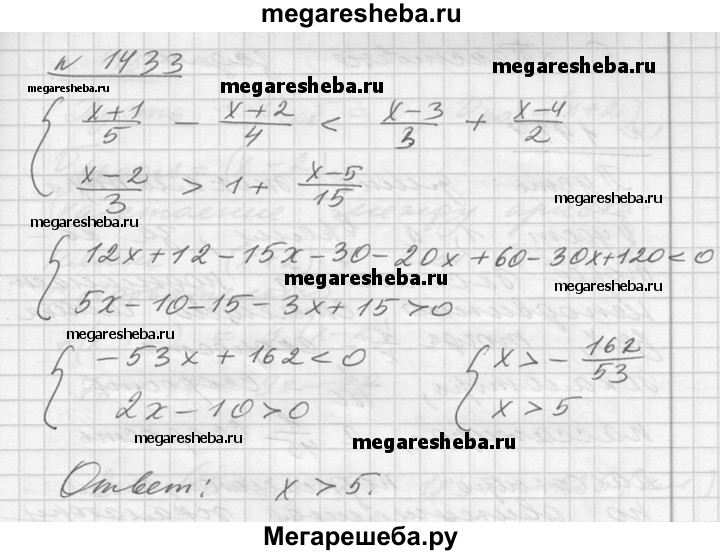 megaresheba.ru
N 1433
megaresheba.ru megaresheba.ru
{ (x+1)/5 - (x+2)/4 < (x-3)/3 + (x-4)/2
(x-2)/3 > 1 + (x-5)/15
megaresheba.ru
megaresheba.ru
12x+12-15x-30-20x+60-30x+120<0
megaresheba.ru megaresheba.ru
{ 5x-10-15-3x+15>0
megaresheba.ru
{ -53x+162<0 { x>-162/53
2x-10>0 x>5
megaresheba.ru megaresheba.ru
Ответ: x>5.
Мегарешеба.ру